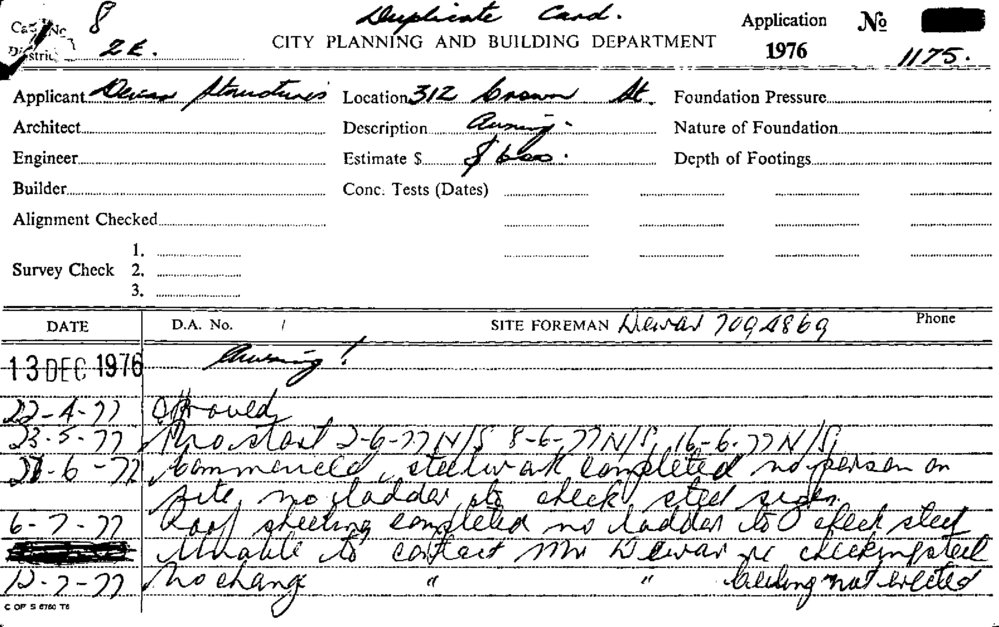 Duplicate Card.
Card No. 8
District 2E.
CITY PLANNING AND BUILDING DEPARTMENT
Application No
1976
1175.
Applicant Dewar Structures Location 312 Crown St. Foundation Pressure
Architect Description Awning. Nature of Foundation
Engineer Estimate $ $600. Depth of Footings
Builder Conc. Tests (Dates)
Alignment Checked
Survey Check 1.
2.
3.
DATE D.A. No. / SITE FOREMAN Dewar 7094869 Phone
13 DEC 1976 Awning!
22-4-77 Approved
23-5-77 No start 2-6-77 N/S 8-6-77 N/S, 16-6-77 N/S,
-6-77 Commenced, steelwork completed no person on
site, no ladder to check steel sizes.
6-7-77 Roof sheeting completed no ladder to check steel
Unable to contact Mr Dewar re checking steel
12-7-77 No change " " Ceiling not erected
C OF S 6760 T6